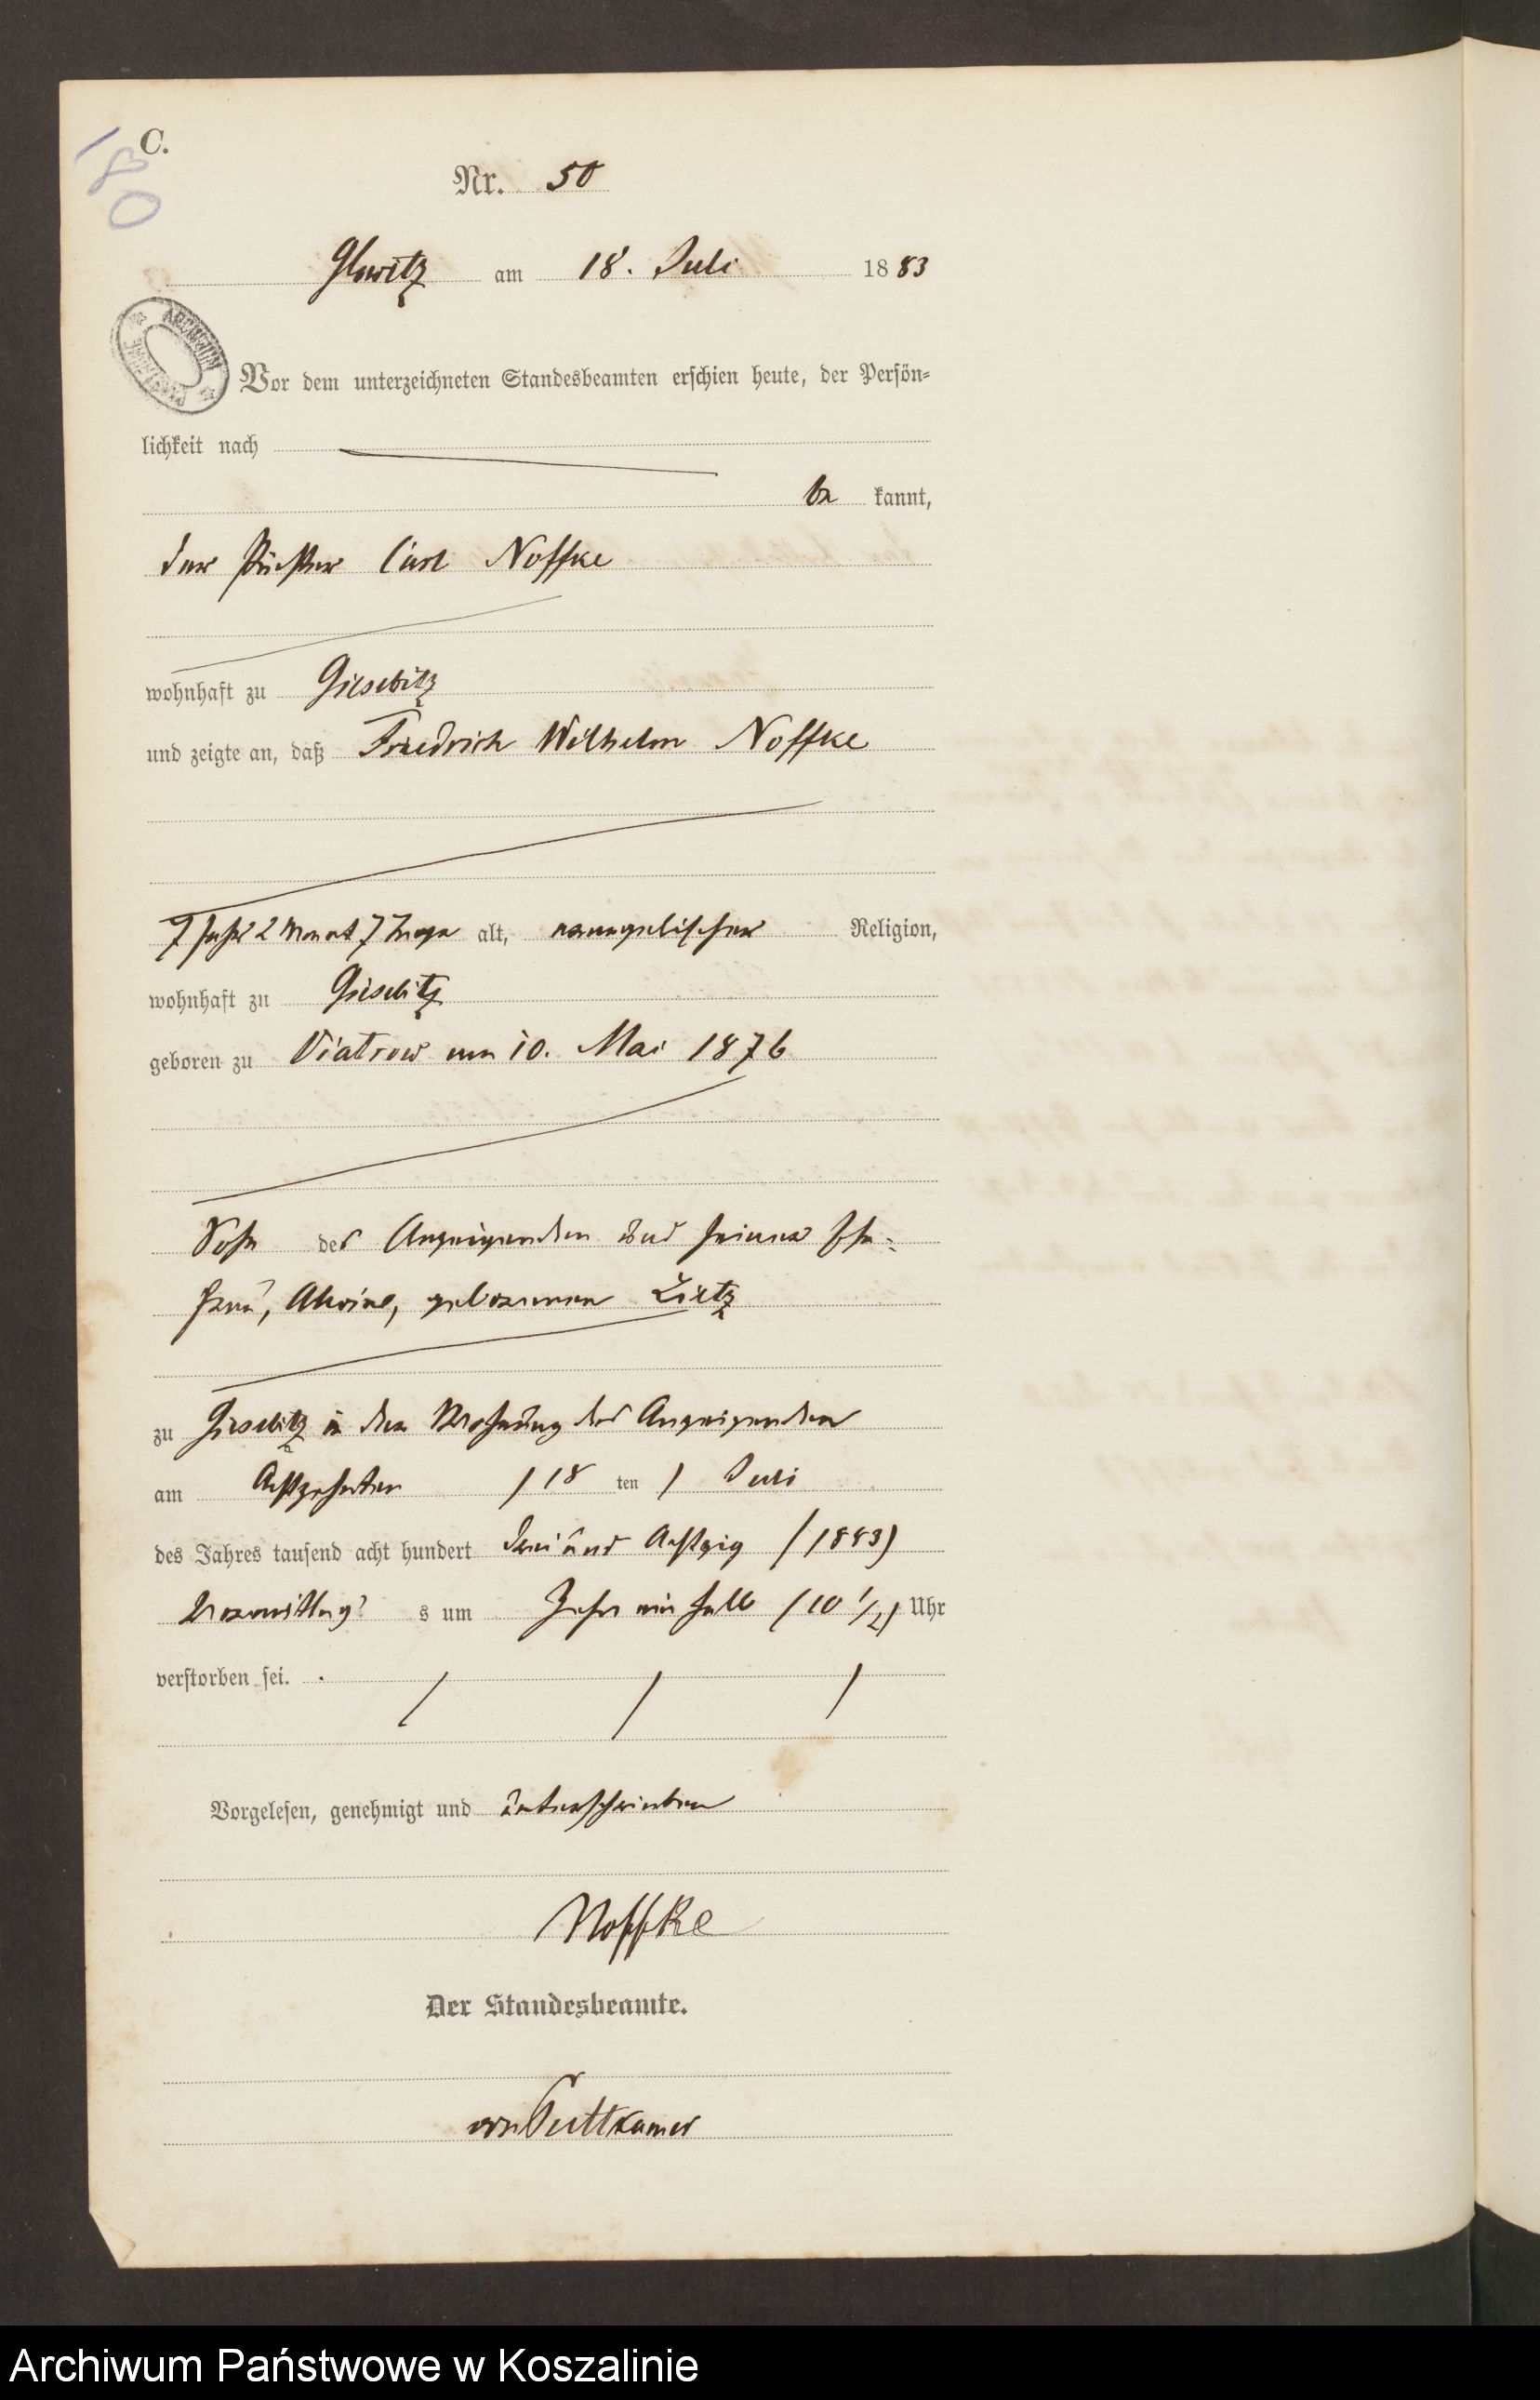 C.
180
Nr. 50
Glowitz am 18. Juli 1883
ARCHIWUM
Vor dem unterzeichneten Standesbeamten erschien heute, der Persön-
lichkeit nach
be kannt,
der Pächter Carl Noffke
wohnhaft zu Giesebitz
und zeigte an, daß Friedrich Wilhelm Noffke
7 Jahr 2 Monat 7 Tage alt, evangelischer Religion,
wohnhaft zu Giesebitz
geboren zu Viatrow am 10. Mai 1876
Sohn des Anzeigenden und seiner Ehe-
frau, Alwine, geborenen Lietz
zu Giesebitz in der Wohnung des Anzeigenden
am Achtzehnten / 18 ten / Juli
des Jahres tausend acht hundert drei und Achtzig (1883)
Vormittag s um Zehn ein halb (10 1/2) Uhr
verstorben sei.
Vorgelesen, genehmigt und unterschrieben
Noffke
Der Standesbeamte.
von Puttkamer
Archiwum Państwowe w Koszalinie